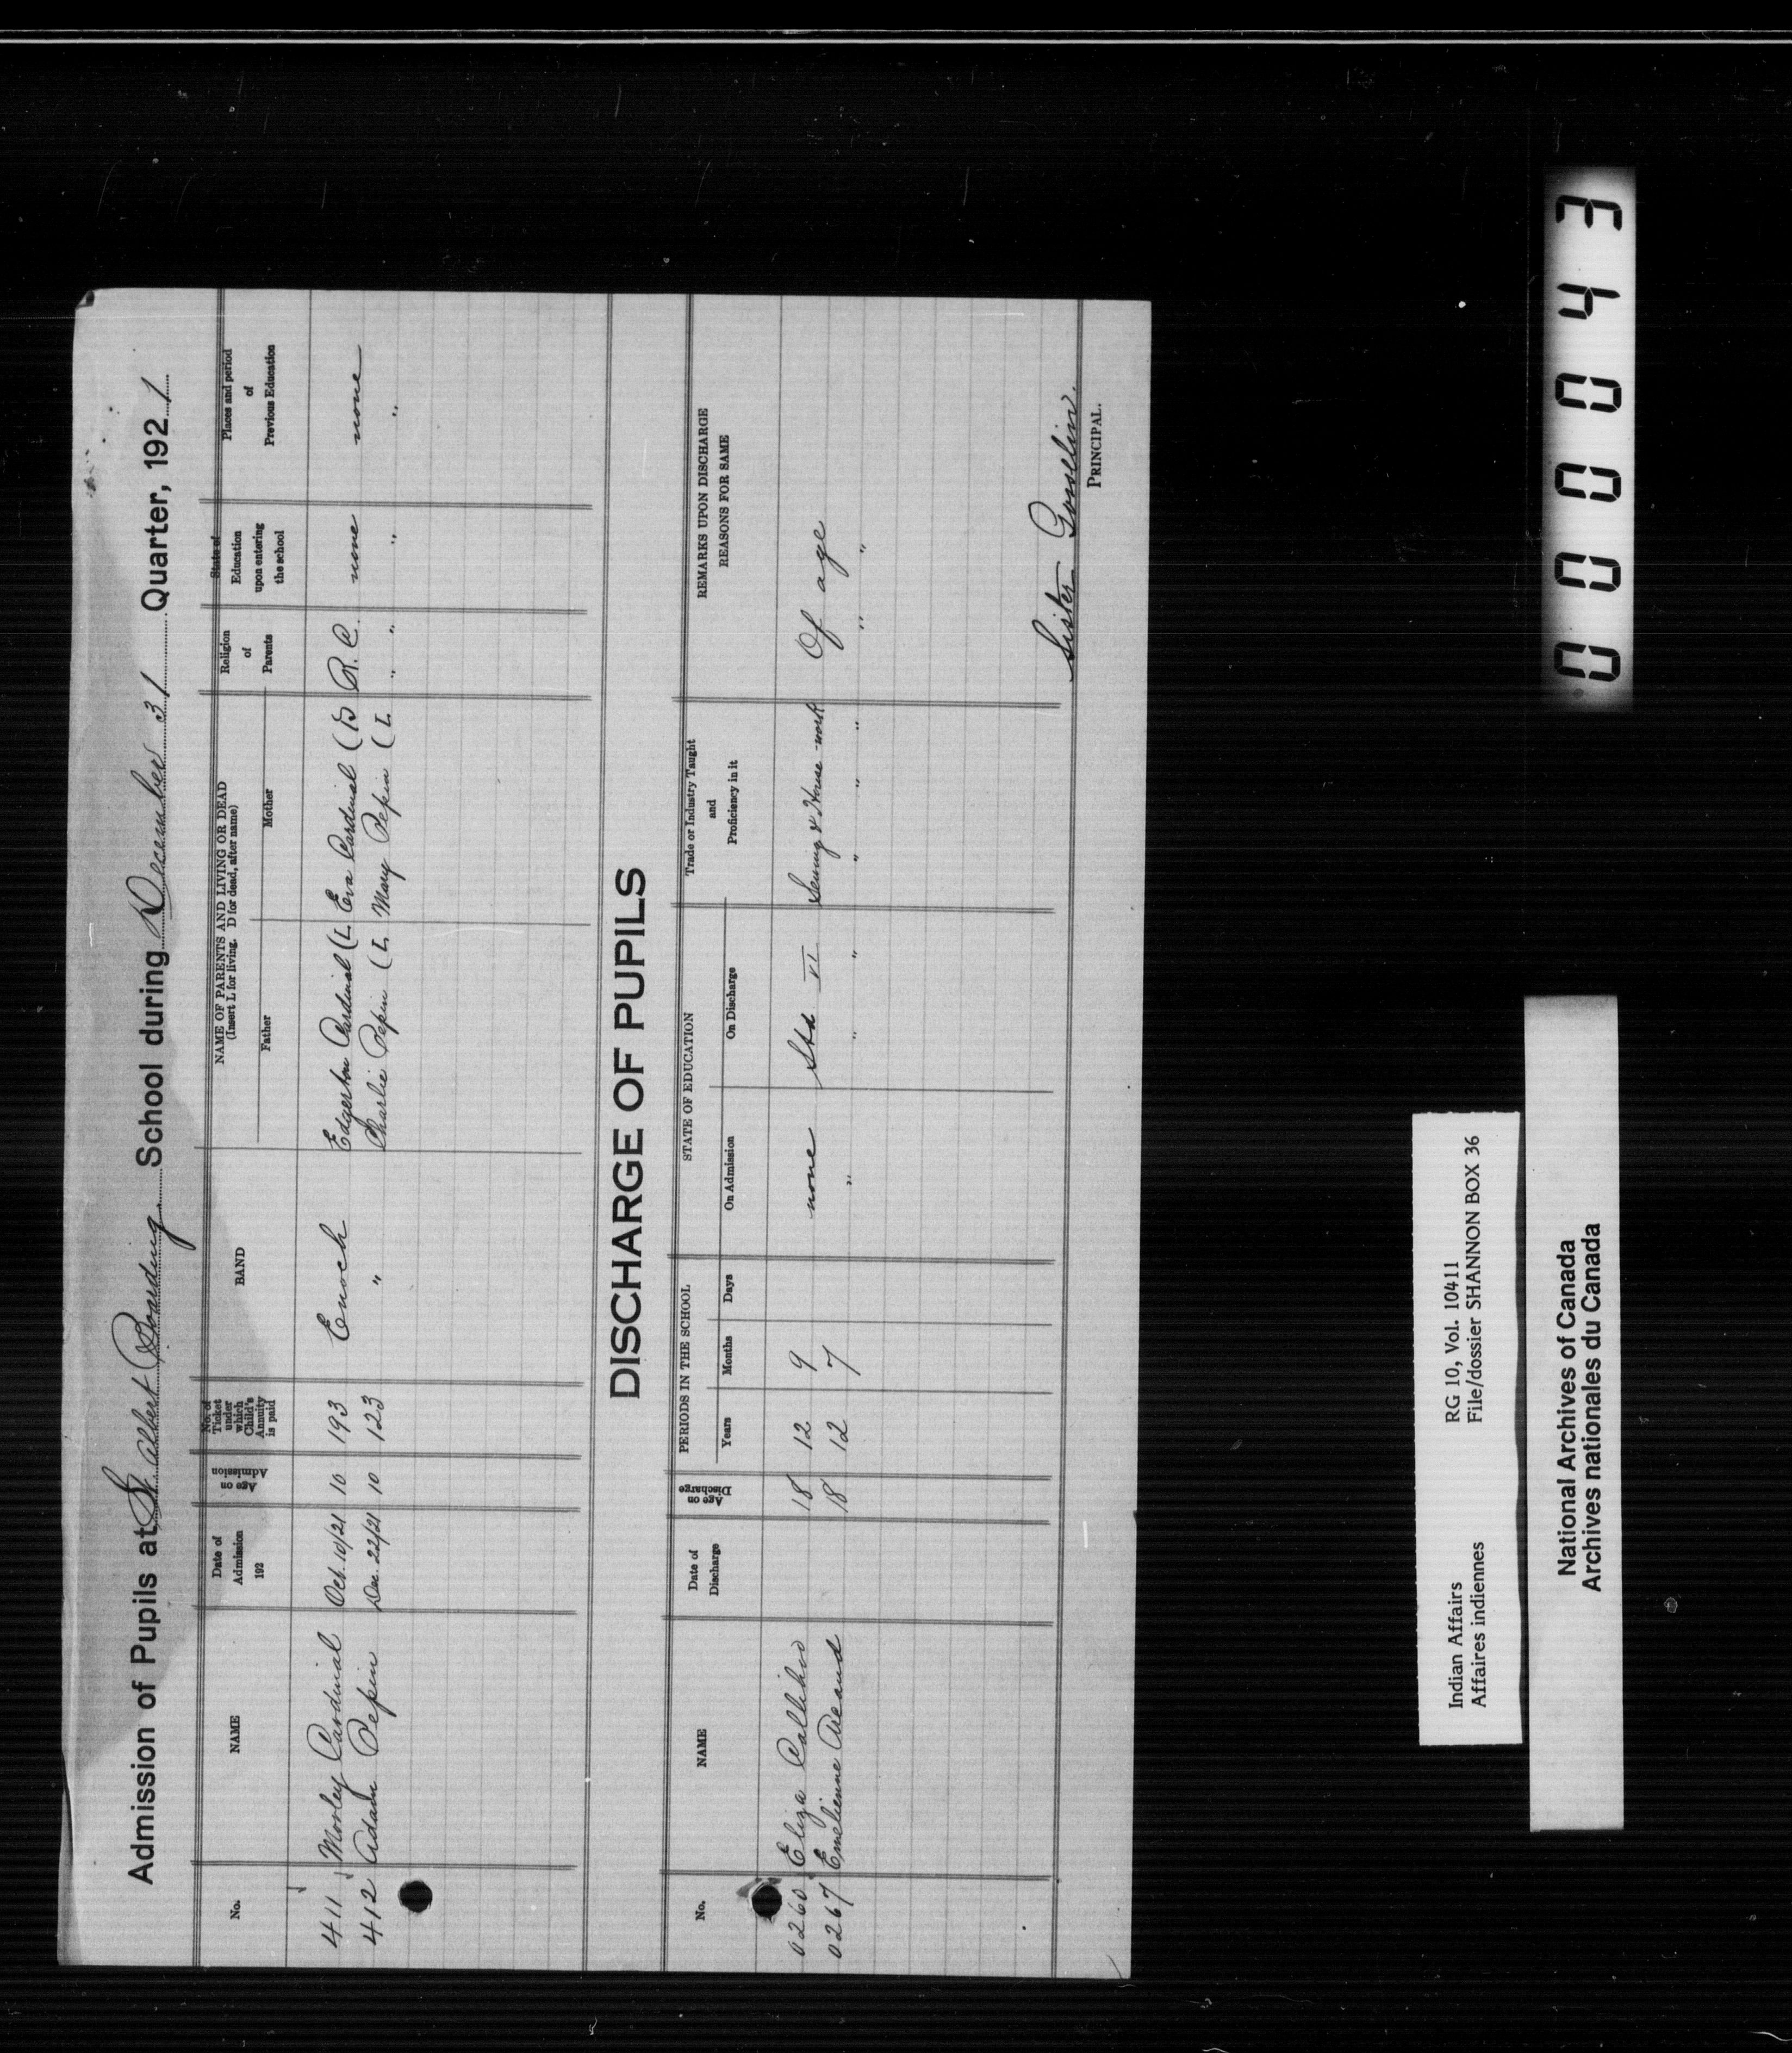 Admission of Pupils at St. Albert Boarding School during December 31 Quarter, 1921
No. NAME Date of Admission 192 Age on Admission No. of Ticket under which Child's Annuity is paid BAND NAME OF PARENTS AND LIVING OR DEAD (Insert L for living. D for dead, after name) Father Mother Religion of Parents State of Education upon entering the school Places and period of Previous Education
411 Morley Cardinal Oct. 10/21 10 193 Enoch Edgerton Cardinal (L. Eva Cardinal (D R. C. none none
412 Adam Pepin Dec. 22/21 10 123 " Charlie Pepin (L. Mary Pepin (L. " " " "
DISCHARGE OF PUPILS
No. NAME Date of Discharge Age on Discharge PERIODS IN THE SCHOOL Years Months Days STATE OF EDUCATION On Admission On Discharge Trade or Industry Taught and Proficiency in it REMARKS UPON DISCHARGE REASONS FOR SAME
0260 Eliza Callihoo 18 12 9 none Std VI Sewing & House-work Of age
0267 Emelienne 18 12 7 " " " " " " " "
Sister Gosselin.
PRINCIPAL.
Indian Affairs RG 10, Vol. 10411
Affaires indiennes File/dossier SHANNON BOX 36
National Archives of Canada
Archives nationales du Canada
000043